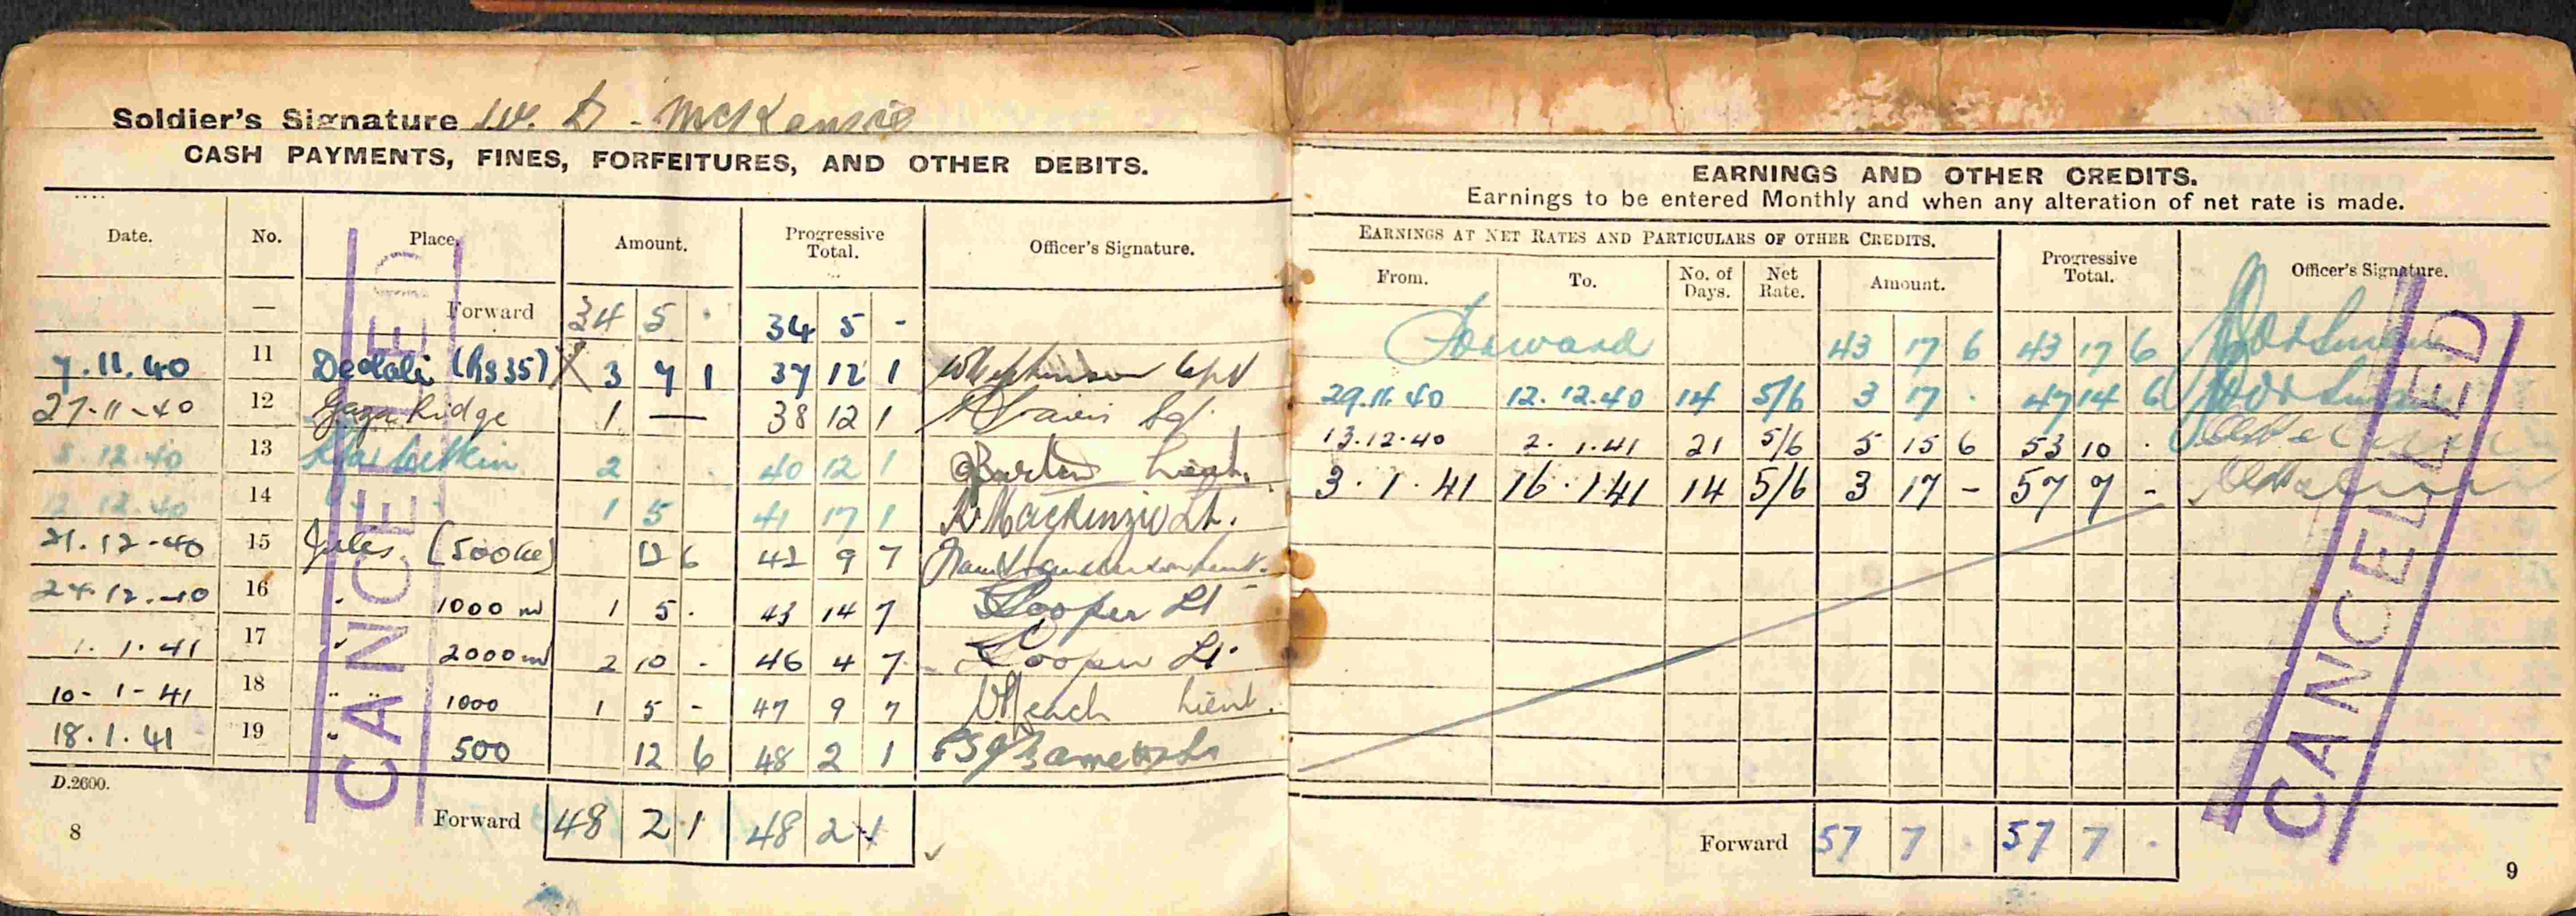 Soldier's Signature W. D - McKenzie
CASH PAYMENTS, FINES, FORFEITURES, AND OTHER DEBITS.
Date. No. Place. Amount. Progressive Total. Officer's Signature.
— Forward 34 5 · 34 5 -
7.11.40 11 (Rs35) X 3 7 1 37 12 1
27-11-40 12 Gaza Ridge 1 — 38 12 1
8.12.40 13 2 · · 40 12 1 Lieut.
12.12.40 14 1 5 41 17 1 R MacKenzie Lt.
21.12-40 15 Julis (500 12 6 42 9 7
24.12.-40 16 " 1000 m 1 5 · 43 14 7 Cooper Lt
1. 1. 41 17 " 2000 m 2 10 - 46 4 7 Cooper Lt.
10-1-41 18 " " 1000 1 5 - 47 9 7 Lieut.
18.1.41 19 " 500 12 6 48 2 1
D.2600.
Forward 48 2 1 48 2 1
8
CANCELLED
EARNINGS AND OTHER CREDITS.
Earnings to be entered Monthly and when any alteration of net rate is made.
EARNINGS AT NET RATES AND PARTICULARS OF OTHER CREDITS. Progressive Total. Officer's Signature.
From. To. No. of Days. Net Rate. Amount.
Forward 43 17 6 43 17 6
29.11.40 12.12.40 14 5/6 3 17 · 47 14 6
13.12.40 2. 1.41 21 5/6 5 15 6 53 10 ·
3.1.41 16.1.41 14 5/6 3 17 - 57 7 -
Forward 57 7 · 57 7 ·
9
CANCELLED